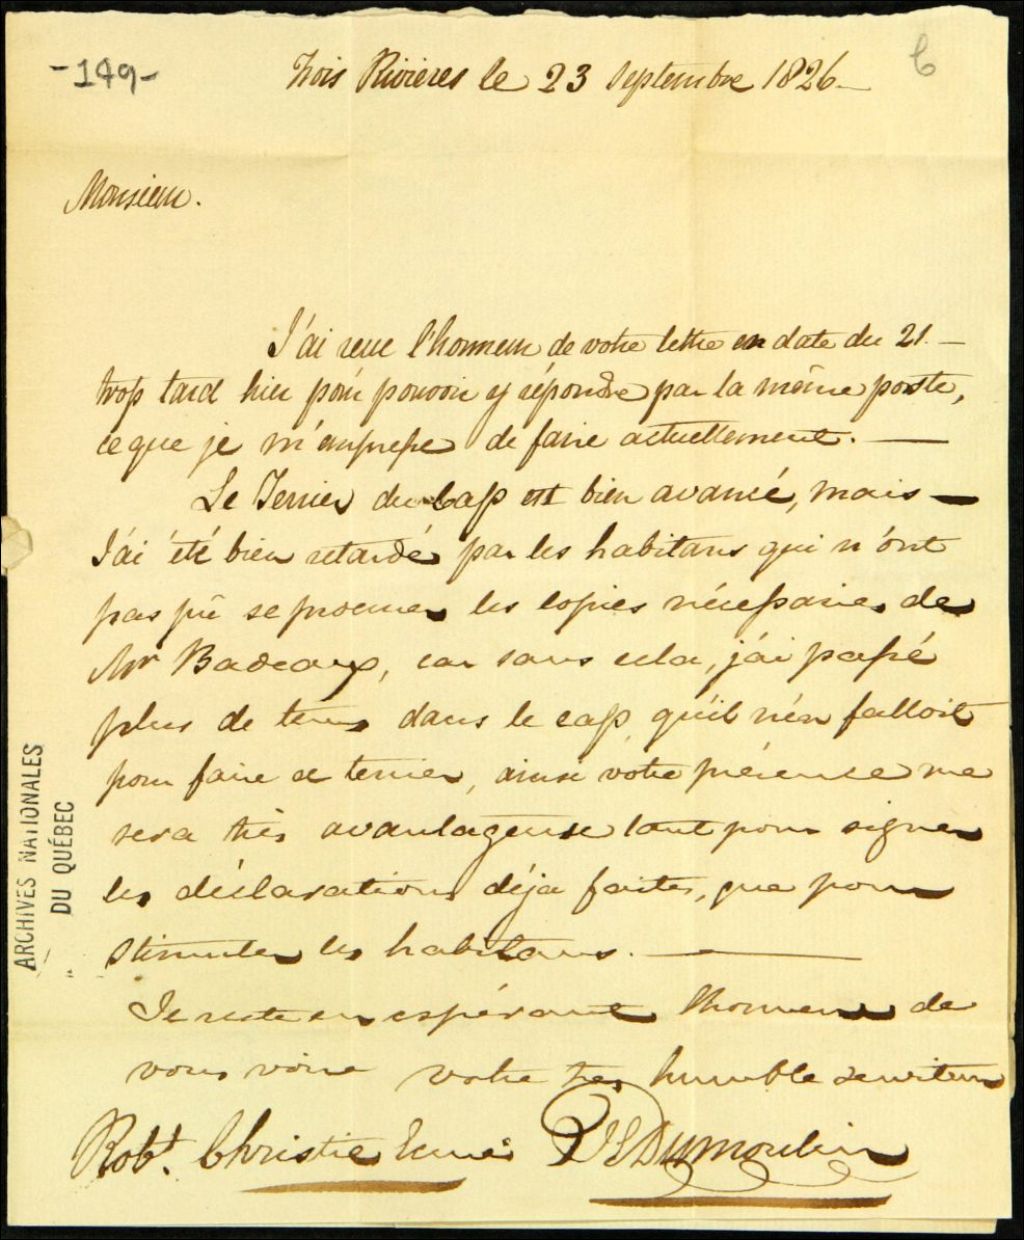 -149-
C
Trois Rivieres le 23 Septembre 1826
Monsieur.
J'ai reçue l'honneur de votre lettre en date du 21. —
trop tard hier pour pouvoir y répondre par la même poste,
ce que je m'empresse de faire actuellement. —
Le Terrier du Cap est bien avancé, mais —
J'ai été bien retardé par les habitans qui n'ont
pas pû se procurer les copies nécessaires de
Mr Badeaux, car sans cela, j'ai passé
plus de tems dans le cap qu'il n'en falloit
pour faire ce terrier, ainsi votre présence me
sera très avantageuse tant pour signer
les déclarations déja faites, que pour
stimuler les habitans. —
Je reste en espérant l'honneur de
vous voire votre tres humble serviteur
Robt. Christie Ecuier Dumoulin
ARCHIVES NATIONALES
DU QUÉBEC